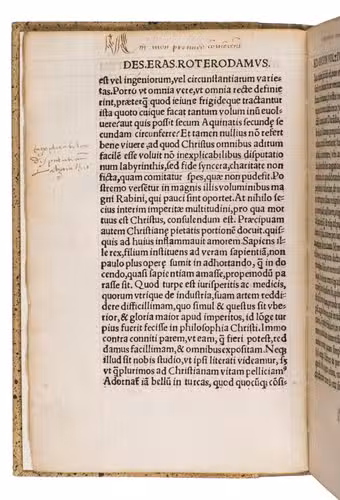 DES. ERAS. ROTERODAMVS.
est vel ingeniorum, vel circunstantiarum varie
tas. Porro vt omnia vere, vt omnia recte definie
rint, præterq̃ quod ieiune frigideque tractantur
ista quoto cuique facat tantum volum inũ euol
uere? aut quis possit secum Aquinatis secundę se
cundam circunferre? Et tamen nullius nõ refert
bene viuere, ad quod Christus omnibus aditum
facilẽ esse voluit nõ inexplicabilibus disputatio
num labyrinthis, sed fide syncera, charitate non
ficta, quam comitatur spes, quæ nõ pudefit. Po
stremo versetur in magnis illis voluminibus ma
gni Rabini, qui pauci sint oportet. At nihilo se/
cius interim imperitę multitudini, pro qua mor
tuus est Christus, consulendum est. Præcipuam
autem Christianę pietatis portionẽ docuit, quis/
quis ad huius inflammauit amorem. Sapiens il-
le rex, filium instituens ad veram sapientiã, non
paulo plus operę sumit in adhortando, q̃ in do
cendo, quasi sapientiam amasse, propemodũ pa
rasse sit. Quod turpe est iurisperitis ac medicis,
quorum vtrique de industria, suam artem reddi
dere difficillimam, quo simul & questus sit vbe-
rior, & gloria maior apud imperitos, id lõge tur
pius fuerit fecisse in philosophia Christi. Immo
contra conniti parem, vt eam, q̃ fieri potest, red
damus facillimam, & omnibus expositam. Neq;
illud sit nobis studio, vt ipsi literati videamur, sʒ
vt q̃plurimos ad Christianam vitam pelliciam⁹
Adornat̃ iã bellũ in turcas, quod quocũq; cõsi/